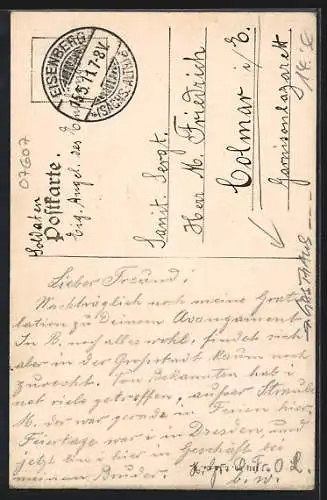 EISENBERG
15.5.11.7-8V.
(SACHS.-ALTBG.)
07607
Soldaten
Postkarte.
Eig. Angel. des Empf.
Sanit. Sergt.
Herr M. Friedrich
Colmar i/E.
Garnisonlazarett
14. 8.
Lieber Freund!
Nachträglich noch meine Gratu
lation zu deinem Avangament
In B. noch alles wohl, findet sich
aber in der Großstadt kaum noch
zurecht. Von Bekannten hab i
not viele getroffen, außer
M. der war gerade in Ferien hier.
Feiertage war i in Dresden und
jetzt bin i hier in Geschäft bei
meinen Bruder.
b. w.